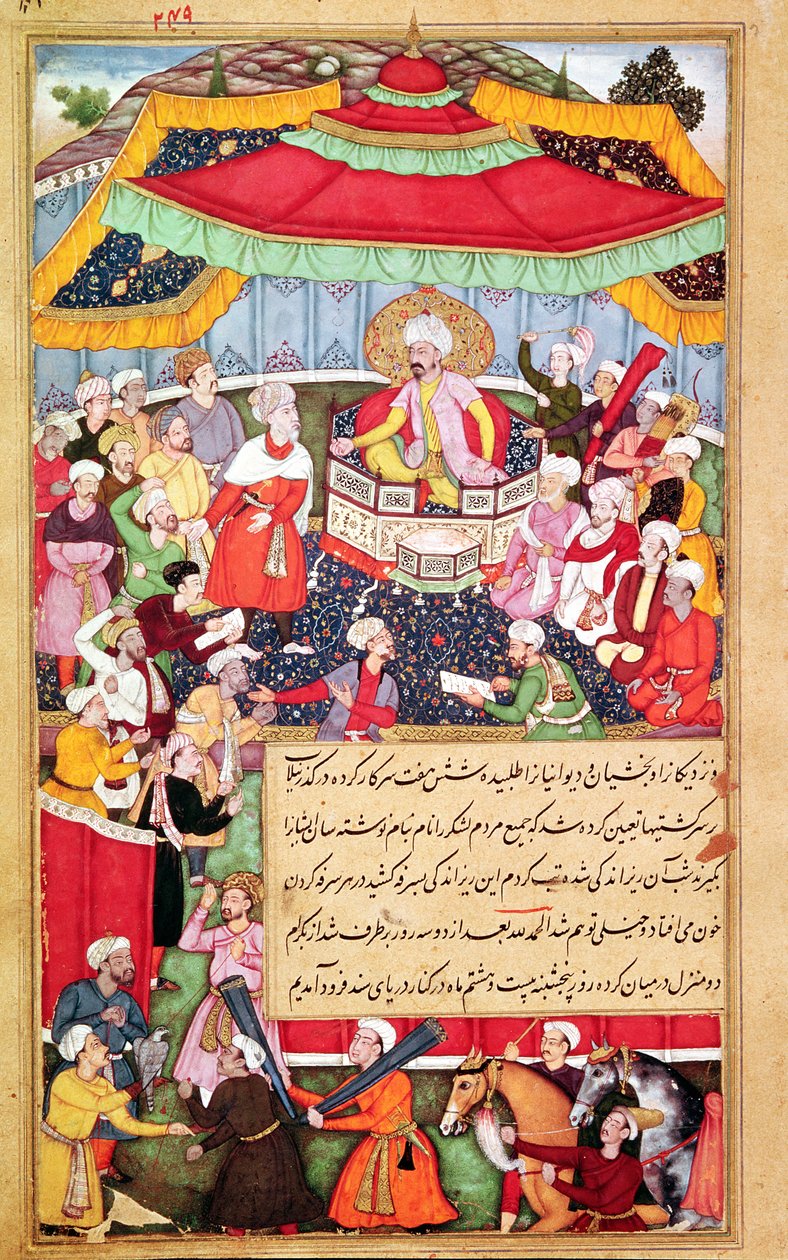 ۲۴۹
ونزدیکانرا وبخشیان و دیوانیانرا طلبیده شش هفت سرکار کرده در گذر نیلاب
بر سر کشتیها تعیین کرده شد که جمیع مردم لشکر را نام بنام نوشته سان ایشانرا
بگیرند شب آن ریزاندکی شده تب کردم این ریزاندکی بسرفه کشید در هر سرفه کردن
خون می افتاد وخیلی توهم شد الحمدلله بعد از دو سه روز برطرف شد از بکرام
دو منزل درمیان کرده روز پنجشنبه بیست وهشتم ماه در کنار دریای سند فرود آمدیم